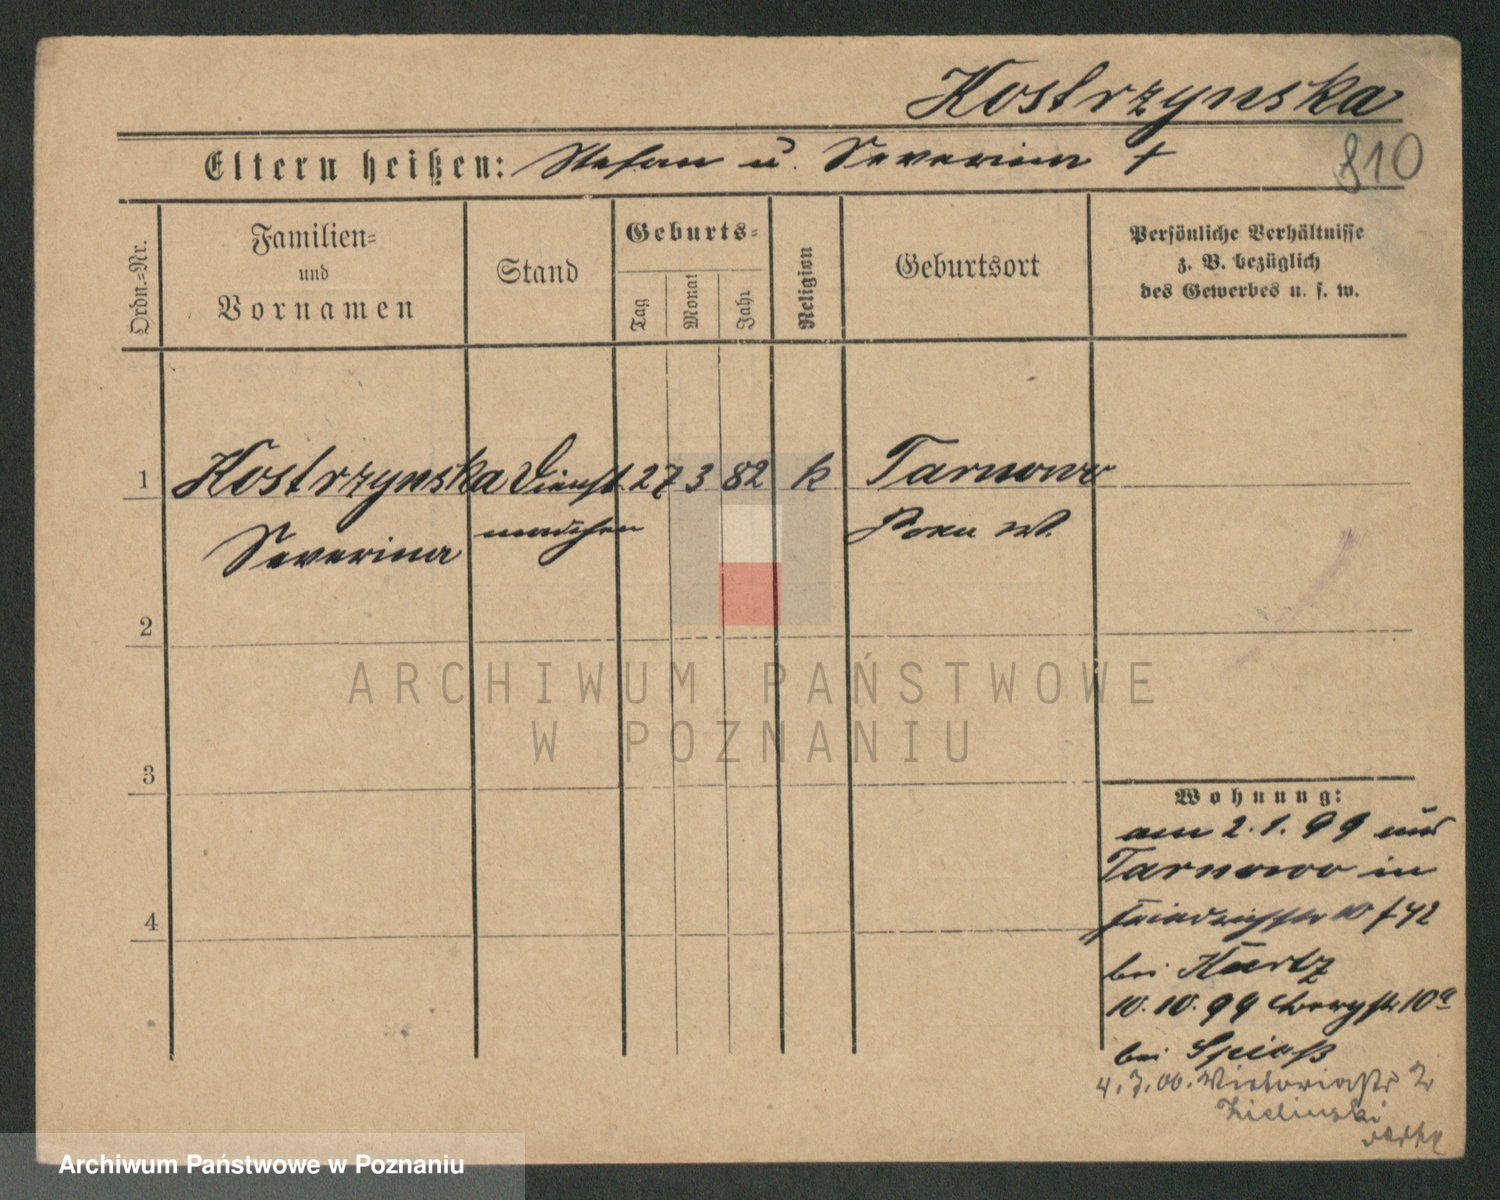 Kostrzynska
810
Eltern heißen: Stefan u. Severina +
Ordn.=Nr.
Familien=
und
Vornamen
Stand
Geburts=
Tag
Monat
Jahr
Religion
Geburtsort
Persönliche Verhältnisse
z. B. bezüglich
des Gewerbes u. s. w.
1 Kostrzynska Dienst 27 3 82 k Tarnowo
Severina mädchen Posen W.
2
3
4
ARCHIWUM PAŃSTWOWE
W POZNANIU
Wohnung:
am 2.1.99 aus
Tarnowo in
Friedrichstr 10
bei Kurtz
10.10.99 Bergstr 10a
bei Spieß
4.7.00. Victoriastr 2
Zielinski
Archiwum Państwowe w Poznaniu